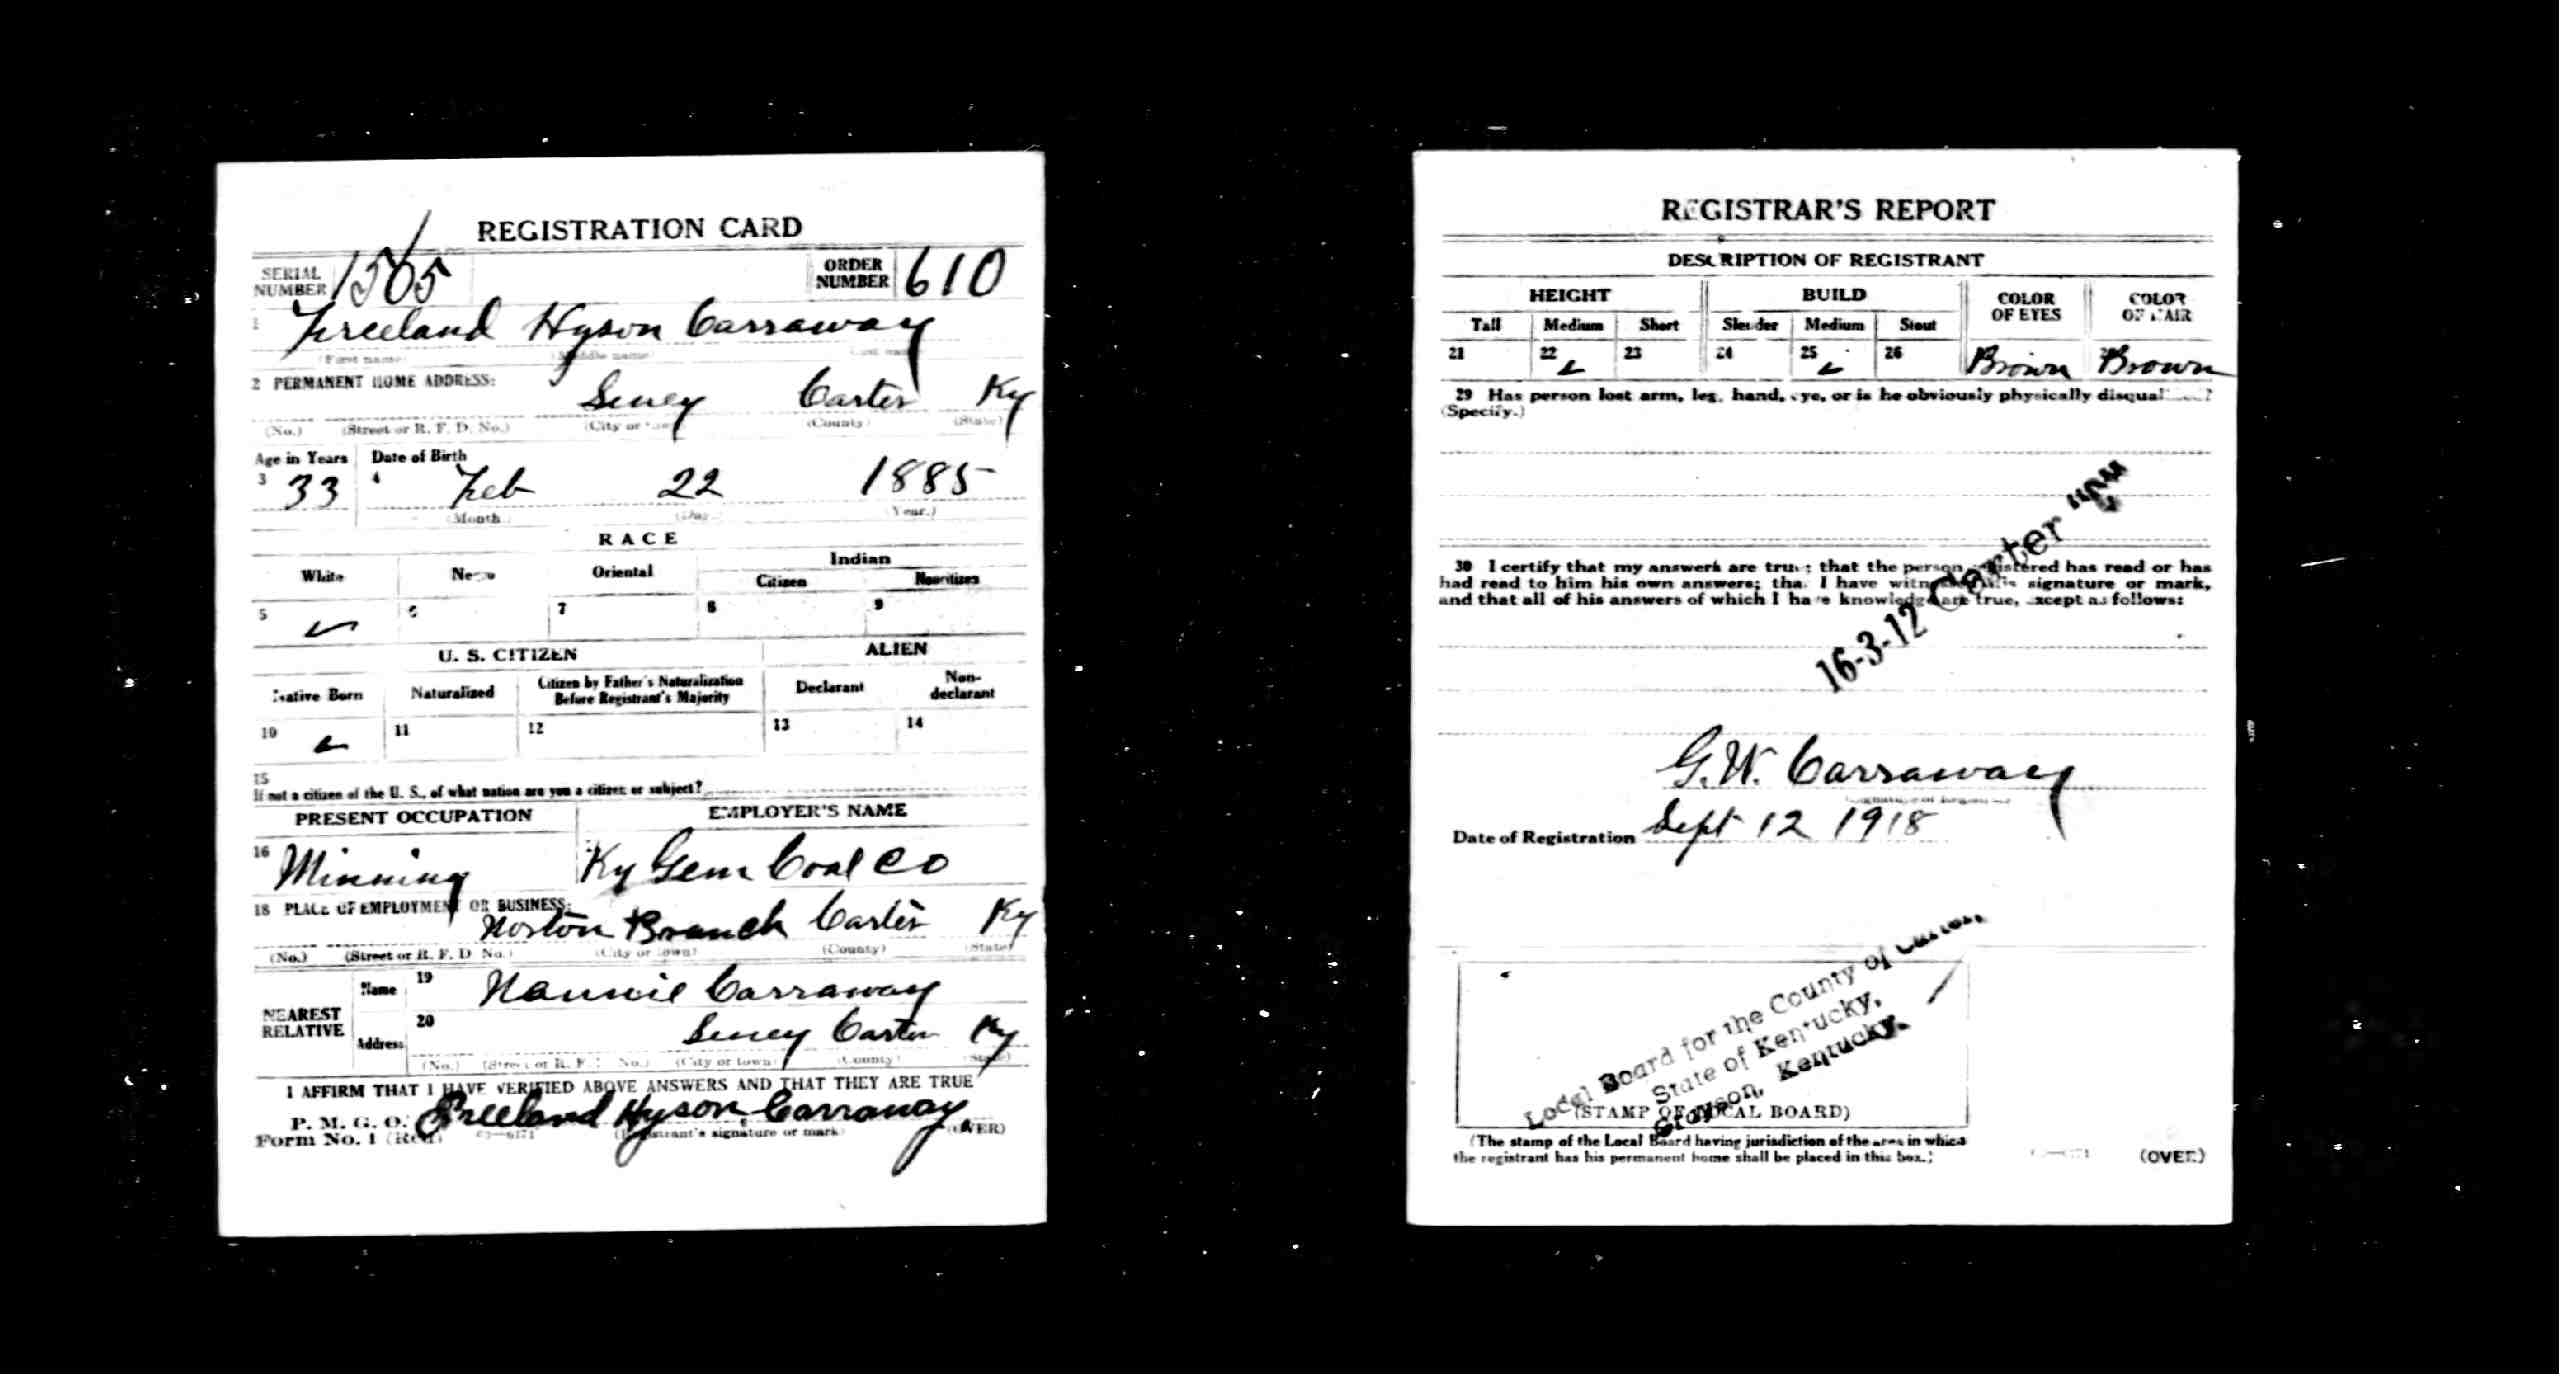 REGISTRATION CARD
SERIAL NUMBER 1505 ORDER NUMBER 610
1 Freeland Hyson Carraway
(First name) (Middle name) (Last name)
2 PERMANENT HOME ADDRESS:
Seney Carter Ky
(No.) (Street or R. F. D. No.) (City or town) (County) (State)
Age in Years Date of Birth
3 33 4 Feb 22 1885
(Month.) (Day.) (Year.)
RACE
White Negro Oriental Indian
Citizen Noncitizen
5 6 7 8 9
U. S. CITIZEN ALIEN
Native Born Naturalized Citizen by Father's Naturalization Before Registrant's Majority Declarant Non-declarant
10 11 12 13 14
15
If not a citizen of the U. S., of what nation are you a citizen or subject?
PRESENT OCCUPATION EMPLOYER'S NAME
16 Minning Ky Gem Coal Co
18 PLACE OF EMPLOYMENT OR BUSINESS:
Norton Branch Carter Ky
(No.) (Street or R. F. D. No.) (City or town) (County) (State)
NEAREST RELATIVE
Name 19 Nannie Carraway
Address 20 Seney Carter Ky
(No.) (Street or R. F. D. No.) (City or town) (County) (State)
I AFFIRM THAT I HAVE VERIFIED ABOVE ANSWERS AND THAT THEY ARE TRUE
P. M. G. O.
Form No. 1 (Red) Freeland Hyson Carraway
(Registrant's signature or mark) (OVER)
REGISTRAR'S REPORT
DESCRIPTION OF REGISTRANT
HEIGHT BUILD COLOR OF EYES COLOR OF HAIR
Tall Medium Short Slender Medium Stout
21 22 23 24 25 26 Brown Brown
29 Has person lost arm, leg, hand, eye, or is he obviously physically disqualified?
(Specify.)
30 I certify that my answers are true; that the person registered has read or has
had read to him his own answers; that I have witnessed his signature or mark,
and that all of his answers of which I have knowledge are true, except as follows:
16-3-12 Carter
G. W. Carraway
(Signature of Registrar)
Date of Registration Sept 12 1918
Local Board for the County of Carter,
State of Kentucky,
Grayson, Kentucky.
(STAMP OF LOCAL BOARD)
(The stamp of the Local Board having jurisdiction of the area in which
the registrant has his permanent home shall be placed in this box.)
(OVER)